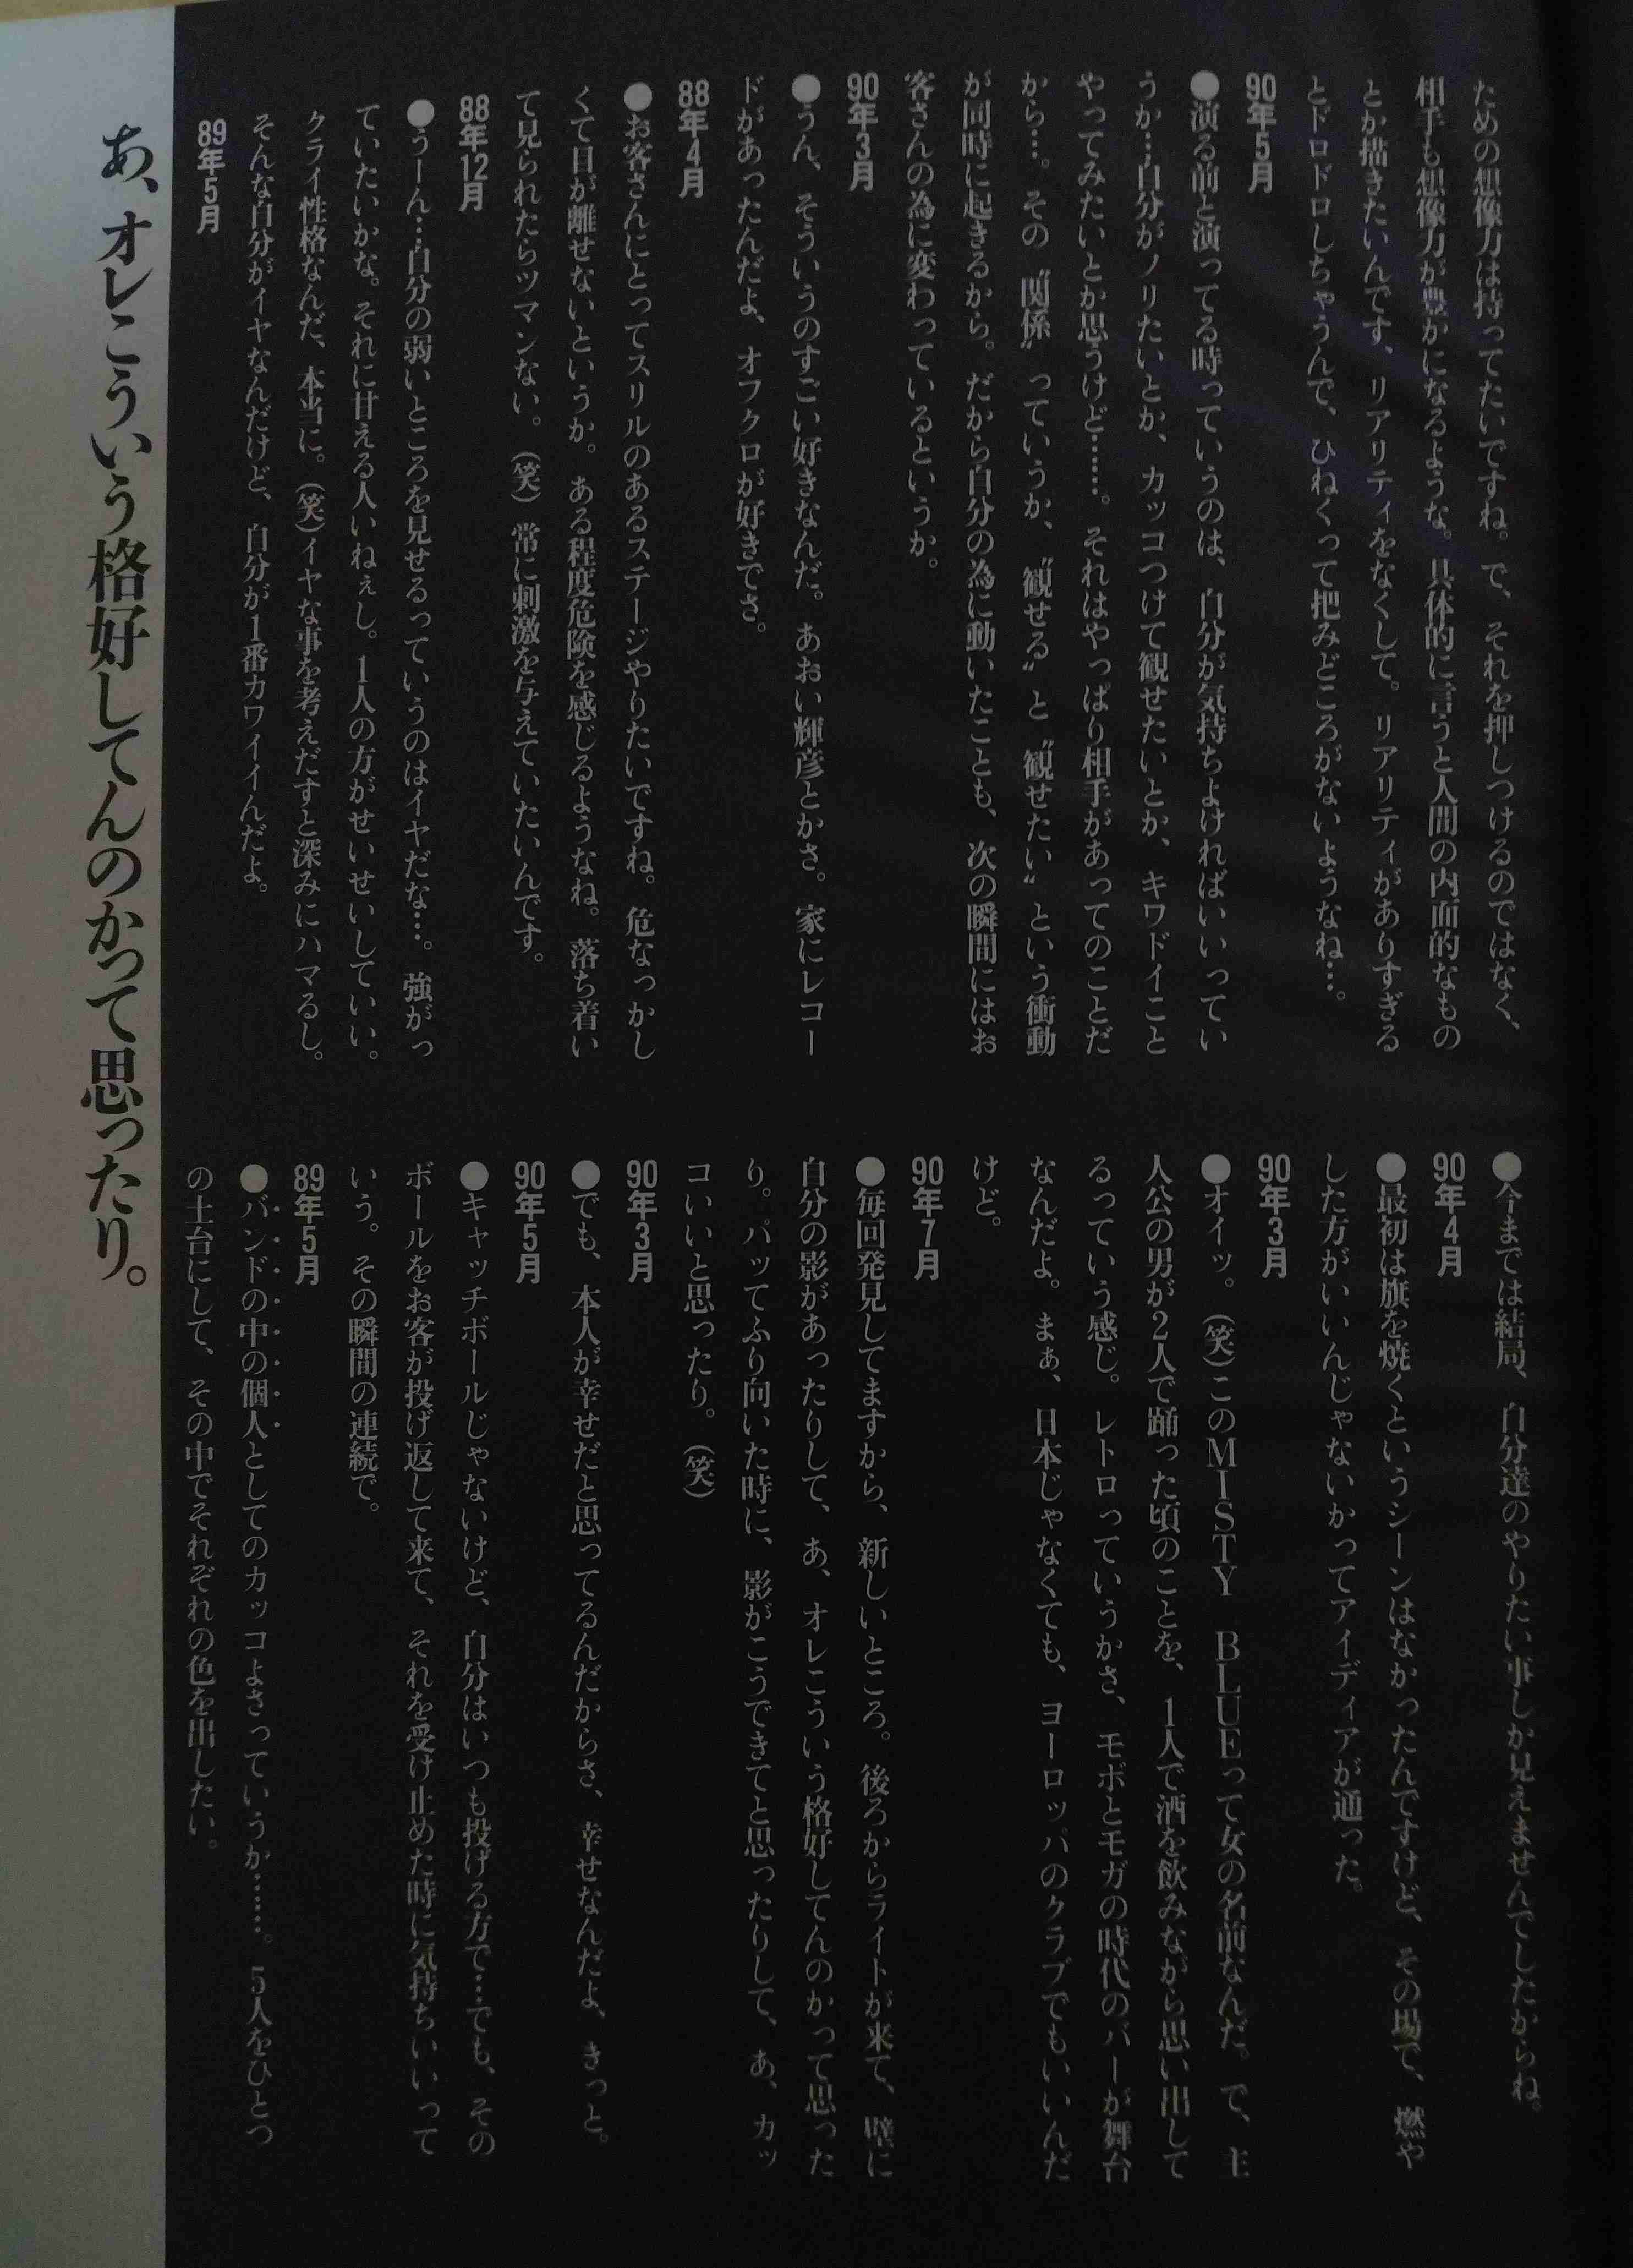 ための想像力は持ってたいですね。で、それを押しつけるのではなく、
相手も想像力が豊かになるような。具体的に言うと人間の内面的なもの
とか描きたいんです、リアリティをなくして。リアリティがありすぎる
とドロドロしちゃうんで、ひねくって把みどころがないようなね…。
90年5月
●演る前と演ってる時っていうのは、自分が気持ちよければいいってい
うか…自分がノリたいとか、カッコつけて観せたいとか、キワドイこと
やってみたいとか思うけど……。それはやっぱり相手があってのことだ
から…。その〝関係〟っていうか、〝観せる〟と〝観せたい〟という衝動
が同時に起きるから。だから自分の為に動いたことも、次の瞬間にはお
客さんの為に変わっているというか。
90年3月
●うん、そういうのすごい好きなんだ。あおい輝彦とかさ。家にレコー
ドがあったんだよ、オフクロが好きでさ。
88年4月
●お客さんにとってスリルのあるステージやりたいですね。危なっかし
くて目が離せないというか。ある程度危険を感じるようなね。落ち着い
て見られたらツマンない。(笑)常に刺激を与えていたいんです。
88年12月
●うーん…自分の弱いところを見せるっていうのはイヤだな…。強がっ
ていたいかな。それに甘える人いねぇし。1人の方がせいせいしていい。
クライ性格なんだ、本当に。(笑)イヤな事を考えだすと深みにハマるし。
そんな自分がイヤなんだけど、自分が1番カワイイんだよ。
89年5月
●今までは結局、自分達のやりたい事しか見えませんでしたからね。
90年4月
●最初は旗を焼くというシーンはなかったんですけど、その場で、燃や
した方がいいんじゃないかってアイディアが通った。
90年3月
●オイッ。(笑)このMISTY BLUEって女の名前なんだ。で、主
人公の男が2人で踊った頃のことを、1人で酒を飲みながら思い出して
るっていう感じ。レトロっていうかさ、モボとモガの時代のバーが舞台
なんだよ。まぁ、日本じゃなくても、ヨーロッパのクラブでもいいんだ
けど。
90年7月
●毎回発見してますから、新しいところ。後ろからライトが来て、壁に
自分の影があったりして、あ、オレこういう格好してんのかって思った
り。パッてふり向いた時に、影がこうできてと思ったりして、あ、カッ
コいいと思ったり。(笑)
90年3月
●でも、本人が幸せだと思ってるんだからさ、幸せなんだよ、きっと。
90年5月
●キャッチボールじゃないけど、自分はいつも投げる方で…でも、その
ボールをお客が投げ返して来て、それを受け止めた時に気持ちいいって
いう。その瞬間の連続で。
89年5月
●バンドの中の個人としてのカッコよさっていうか……。5人をひとつ
の土台にして、その中でそれぞれの色を出したい。
あ、オレこういう格好してんのかって思ったり。